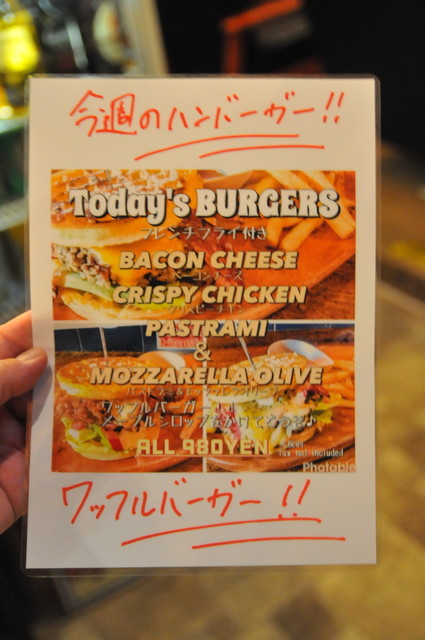 今週のハンバーガー!!
Today's BURGERS
フレンチフライ付き
BACON CHEESE
ベーコンチーズ
CRISPY CHICKEN
クリスピーチキン
PASTRAMI
&
MOZZARELLA OLIVE
ワッフルバーガー
メープルシロップをかけてどうぞ♪
ALL 980YEN
tax not included
Photable
ワッフルバーガー!!